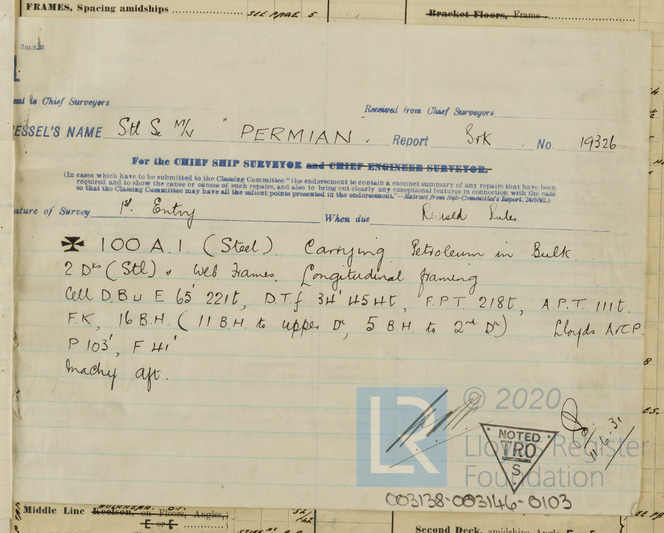 FRAMES, Spacing amidships SEE PAGE 5
Bracket Floors, Frame
ent to Chief Surveyors
Received from Chief Surveyors
ESSEL'S NAME Stl Sc M/V "PERMIAN. Report Srk No. 19326
For the CHIEF SHIP SURVEYOR and CHIEF ENGINEER SURVEYOR.
(In cases which have to be submitted to the Classing Committee "the endorsement to contain a succinct summary of any repairs that have been
required and to show the cause or causes of such repairs, and also to bring out clearly any exceptional features in connection with the case
so that the Classing Committee may have all the salient points presented in the endorsement."—Extract from Sub-Committee's Report, 24/6/92.)
ature of Survey 1st. Entry When due Revised Rules
✠ 100 A.1. (Steel). Carrying Petroleum in Bulk
2 Dks (Stl) & Web Frames. Longitudinal framing
Cell D.B u E 65' 221t, D.T.f 34' 454t, F.P.T. 218t, A.P.T. 111t.
F.K, 16 B.H. (11 B.H. to upper Dk, 5 B.H. to 2nd Dk) Lloyds A&C.P.
P 103', F 41'
Machy aft.
© 2020
LR
Lloyd's Register
Foundation
NOTED
TRO
S.
11.6.31
003138-003146-0103
Middle Line Keelson, on Floors, Angles,
E or S
Second Deck, amidships, Angle